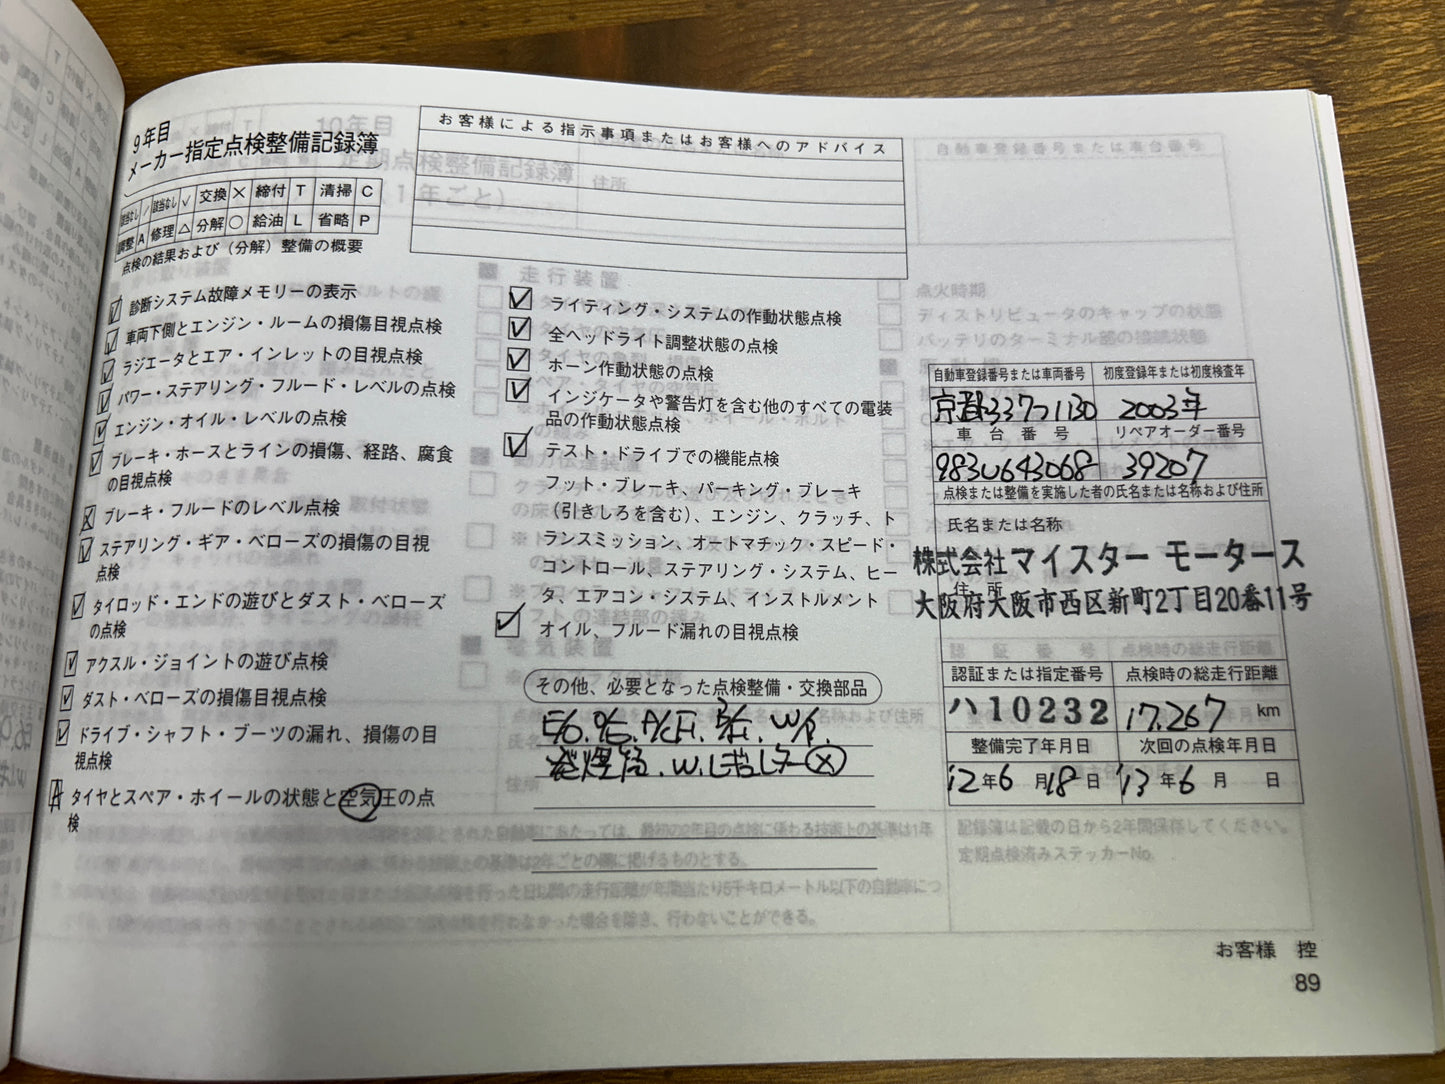 9年目
メーカー指定点検整備記録簿
該当なし / 該当なし ✓ 交換 × 締付 T 清掃 C
調整 A 修理 △ 分解 ○ 給油 L 省略 P
点検の結果および（分解）整備の概要
お客様による指示事項またはお客様へのアドバイス
診断システム故障メモリーの表示
車両下側とエンジン・ルームの損傷目視点検
ラジエータとエア・インレットの目視点検
パワー・ステアリング・フルード・レベルの点検
エンジン・オイル・レベルの点検
ブレーキ・ホースとラインの損傷、経路、腐食
の目視点検
ブレーキ・フルードのレベル点検
ステアリング・ギア・ベローズの損傷の目視
点検
タイロッド・エンドの遊びとダスト・ベローズ
の点検
アクスル・ジョイントの遊び点検
ダスト・ベローズの損傷目視点検
ドライブ・シャフト・ブーツの漏れ、損傷の目
視点検
A タイヤとスペア・ホイールの状態と空気圧の点
検
ライティング・システムの作動状態点検
全ヘッドライト調整状態の点検
ホーン作動状態の点検
インジケータや警告灯を含む他のすべての電装
品の作動状態点検
テスト・ドライブでの機能点検
フット・ブレーキ、パーキング・ブレーキ
（引きしろを含む）、エンジン、クラッチ、ト
ランスミッション、オートマチック・スピード・
コントロール、ステアリング・システム、ヒー
タ、エアコン・システム、インストルメント
オイル、フルード漏れの目視点検
その他、必要となった点検整備・交換部品
自動車登録番号または車両番号 初度登録年または初度検査年
京都337つ1130 2003年
車台番号 リペアオーダー番号
983U643068 39207
点検または整備を実施した者の氏名または名称および住所
氏名または名称
株式会社マイスター モータース
住所
大阪府大阪市西区新町2丁目20番11号
認証または指定番号 点検時の総走行距離
ハ10232 17.267 km
整備完了年月日 次回の点検年月日
'12年6月18日 '13年6月 日
お客様 控
89